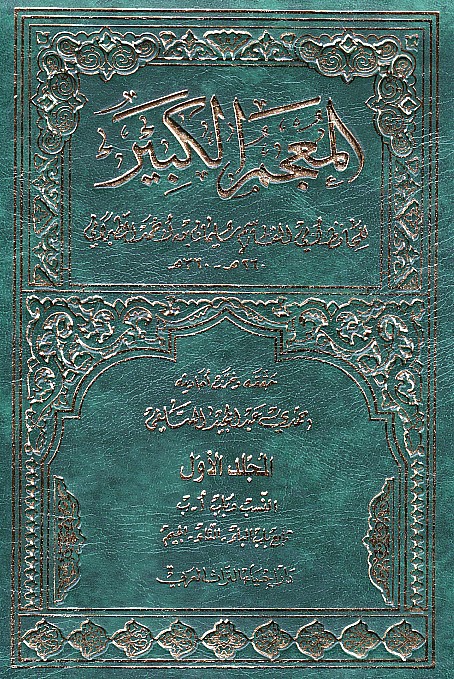 المعجم الكبير
للحافظ أبي القاسم سليمان بن أحمد الطبراني
٢٦٠هـ - ٣٦٠هـ
حققه وخرج أحاديثه
حمدي عبد المجيد السلفي
المجلد الأول
دار إحياء التراث العربي